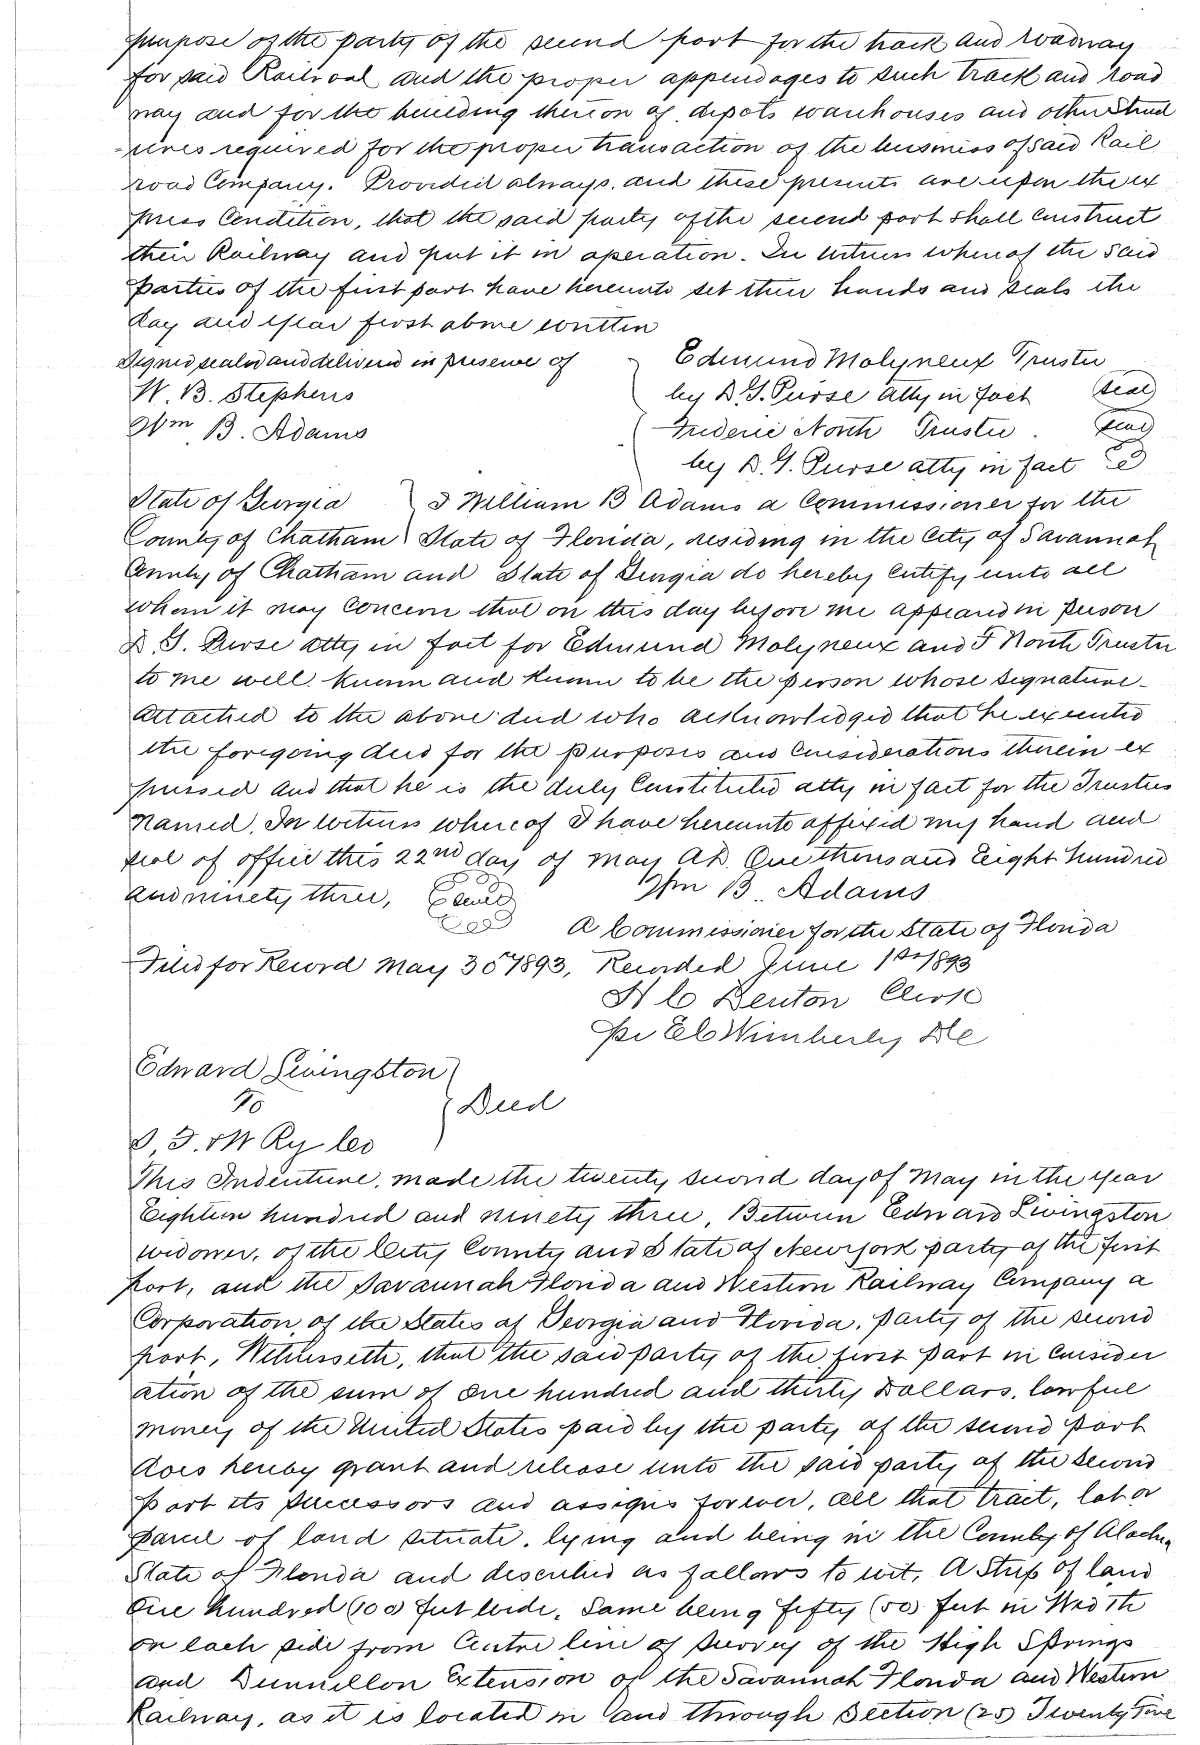 purpose of the party of the second part for the track and roadway
for said Railroad and the proper appendages to such track and road
way and for the building thereon of depots warehouses and other Struct
-ures required for the proper transaction of the business of said Rail
road Company. Provided always, and these presents are upon the ex
press Condition, that the said party of the second part shall construct
their Railway and put it in operation. In witness whereof the said
parties of the first part have hereunto set their hands and seals the
day and year first above written
Signed sealed and delivered in presence of
W. B. Stephens
Wm B. Adams
Edmund Molyneux Trustee
by D. G. Purse atty in fact (seal)
Frederic North Trustee. (seal)
by D. G. Purse atty in fact
State of Georgia
County of Chatham
I William B Adams a Commissioner for the
State of Florida, residing in the City of Savannah
County of Chatham and State of Georgia do hereby certify unto all
whom it may Concern that on this day before me appeared in person
D. G. Purse atty in fact for Edmund Molyneux and F North Trustee
to me well known and known to be the person whose signature
attached to the above deed who acknowledged that he executed
the foregoing deed for the purposes and Considerations therein ex
pressed and that he is the duly Constituted atty in fact for the Trustees
named. In witness whereof I have hereunto affixed my hand and
seal of office this 22nd day of May AD. One thousand Eight hundred
and ninety three, (seal)
Wm B. Adams
A Commissioner for the State of Florida
Filed for Record May 30th 1893, Recorded June 1st 1893
H C Denton Clerk
pr E C Wimberly DC
Edward Livingston
To
Deed
S, F. & W Ry Co
This Indenture, made the twenty second day of May in the year
Eighteen hundred and ninety three, Between Edward Livingston
widower, of the City County and State of New York party of the first
part, and the Savannah Florida and Western Railway Company a
Corporation of the States of Georgia and Florida, party of the second
part, Witnesseth, that the said party of the first part in consider
ation of the sum of one hundred and thirty Dollars, lawful
money of the United States paid by the party of the second part
does hereby grant and release unto the said party of the second
part its successors and assigns forever, all that tract, lot or
parcel of land situate, lying and being in the County of Alachua
State of Florida and described as follows to wit, A Strip of land
One hundred (100) feet wide, Same being fifty (50) feet in Width
on each side from Centre line of survey of the High Springs
and Dunnellon Extension of the Savannah Florida and Western
Railway, as it is located in and through Section (25) Twenty Five